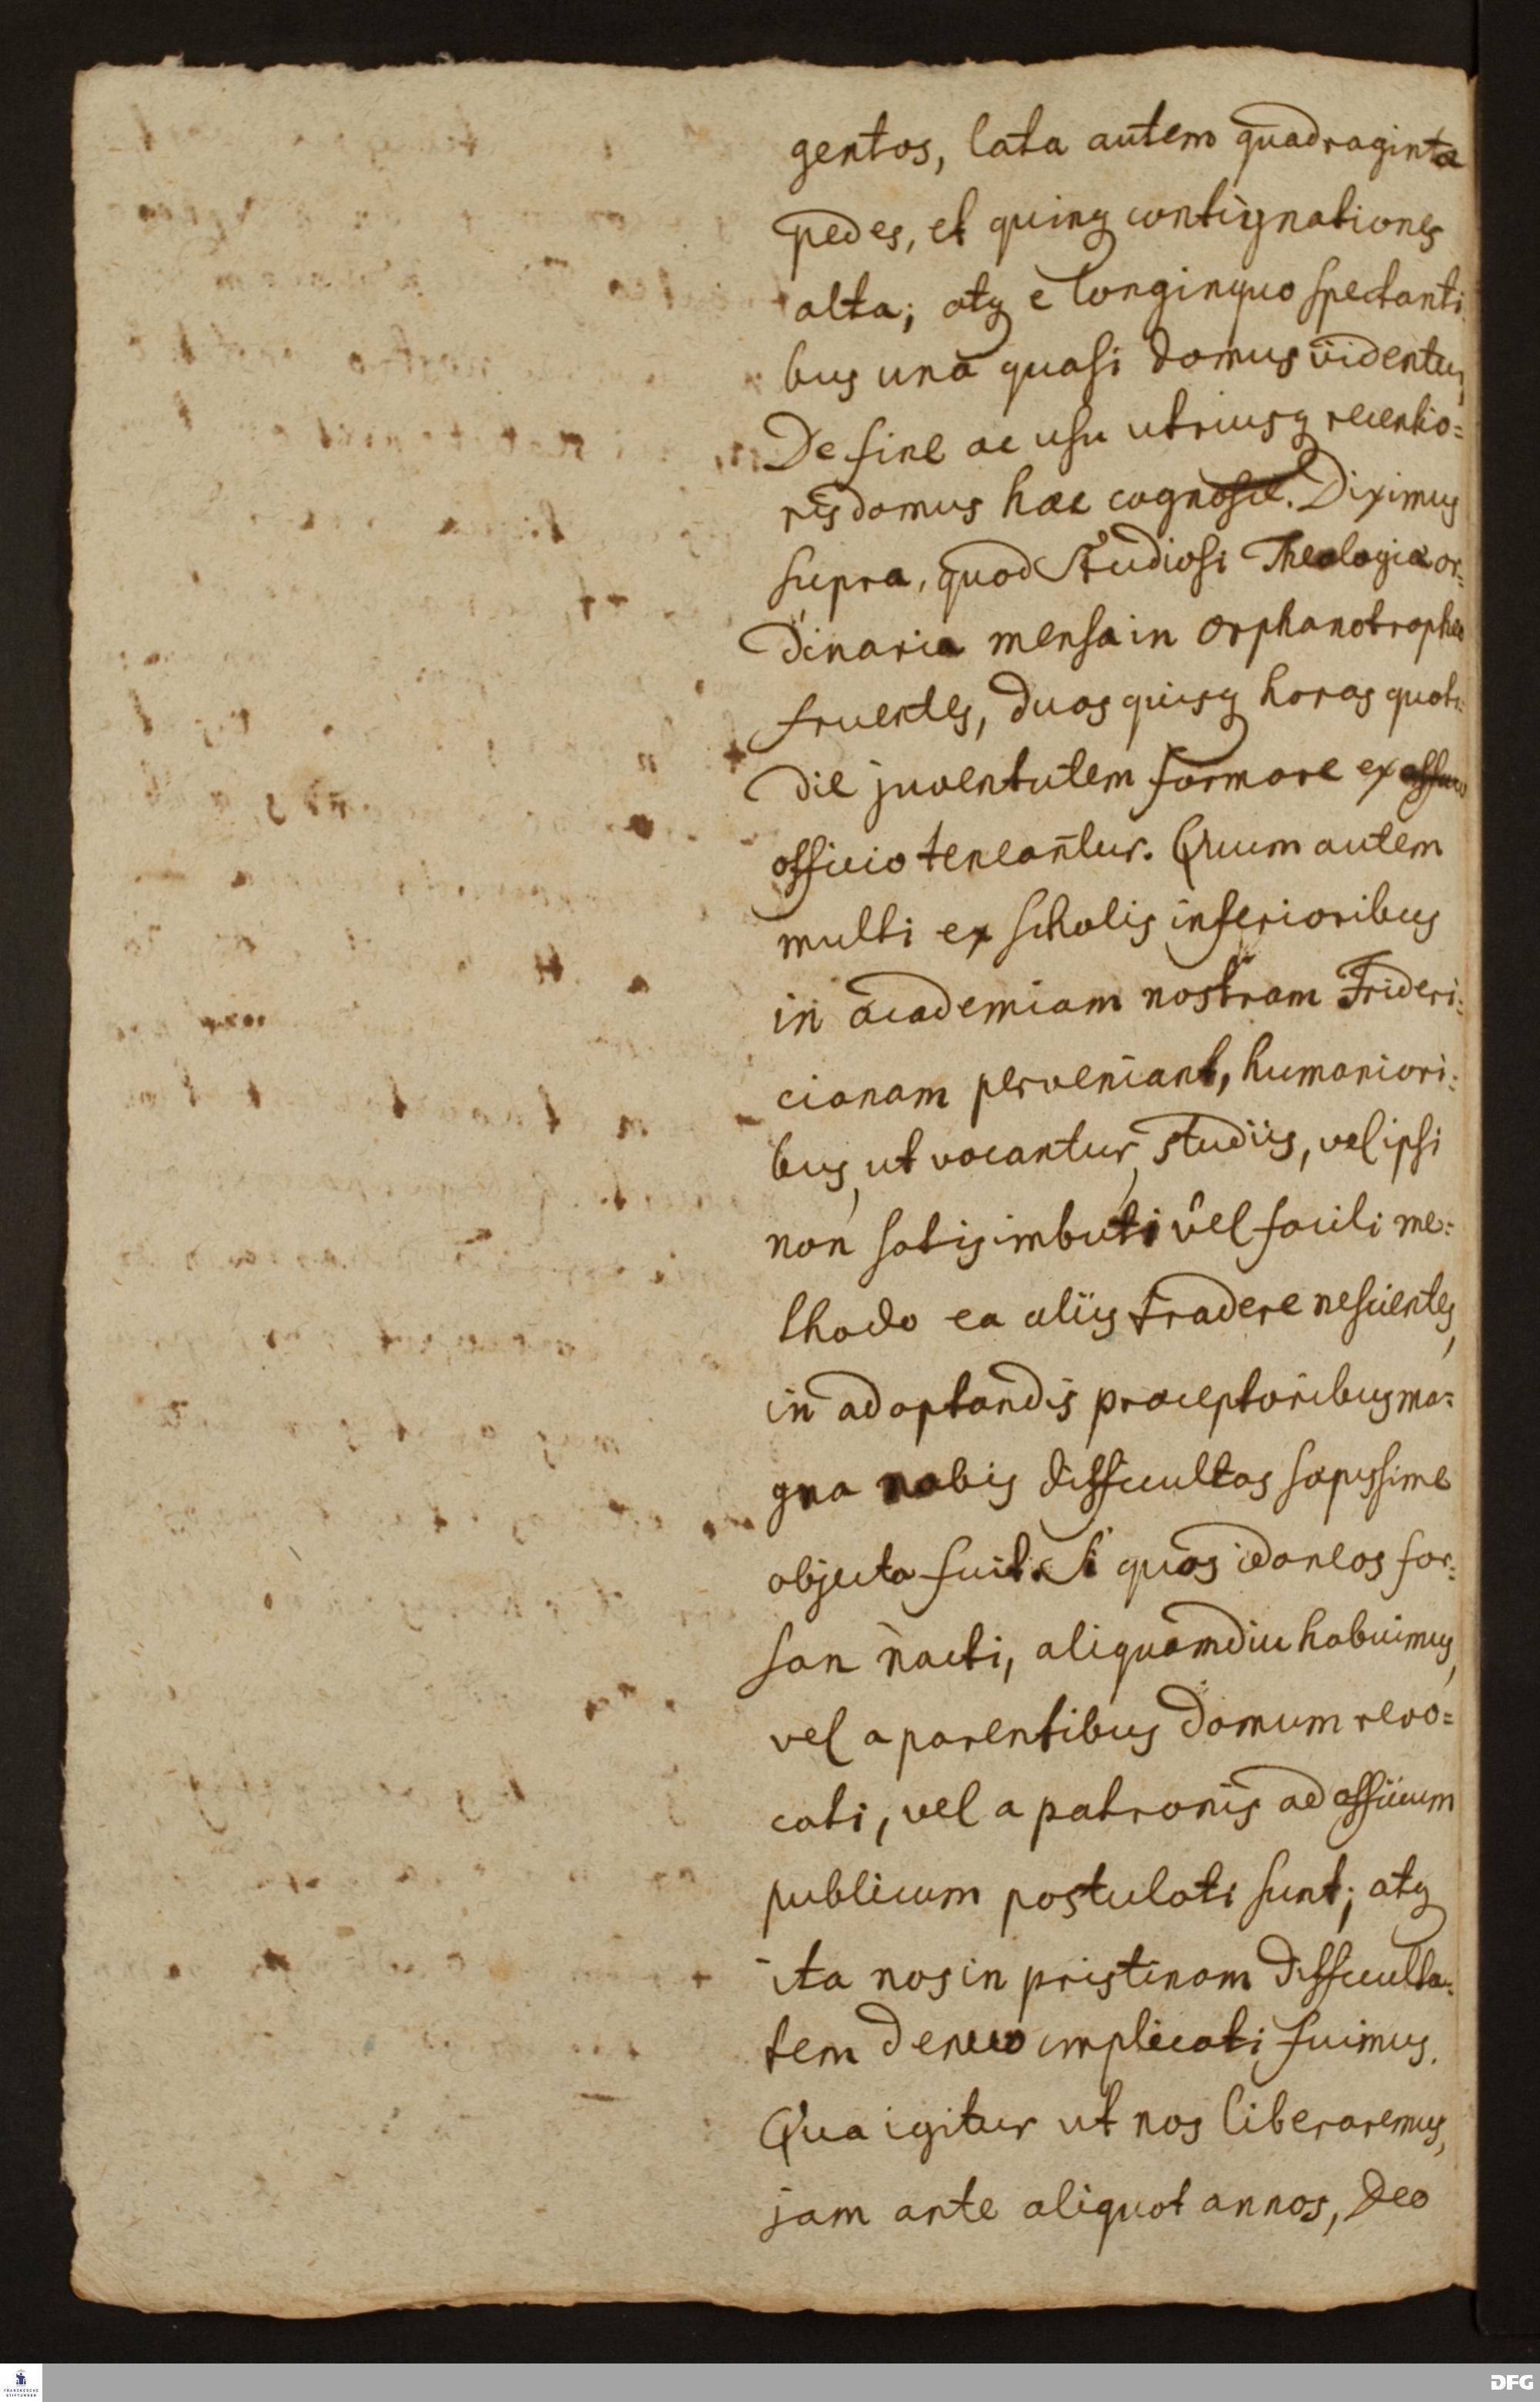 gentos, lata autem quadraginta
pedes, et quinq contignationes
alta; atq e longinquo spectanti
bus una quasi domus videntur
De fine ac usu utriusq recentio=
ris domus hæc cognosce. Diximus
supra, quod Studiosi Theologiæ or=
dinaria mensa in Orphanotropheo
fruentes, duas quisq horas quoti=
die juventutem formare ex
officio teneantur. Quum autem
multi ex scholis inferioribus
in academiam nostram Frideri=
cianam perveniant, humaniori=
bus, ut vocantur, studiis, vel ipsi
non satis imbuti vel facili me=
thodo ea aliis tradere nescientes,
in adoptandis præceptoribus ma=
gna nobis difficultas sæpissime
objecta fuit. Si quos idoneos for=
san nacti, aliquamdiu habuimus,
vel a parentibus domum revo=
cati, vel a patronis ad officium
publicum postulati sunt; atq
ita nos in pristinam difficulta=
tem denuo implicati fuimus.
Qua igitur ut nos liberaremus,
jam ante aliquot annos, Deo
FRANCKESCHE
STIFTUNGEN
DFG